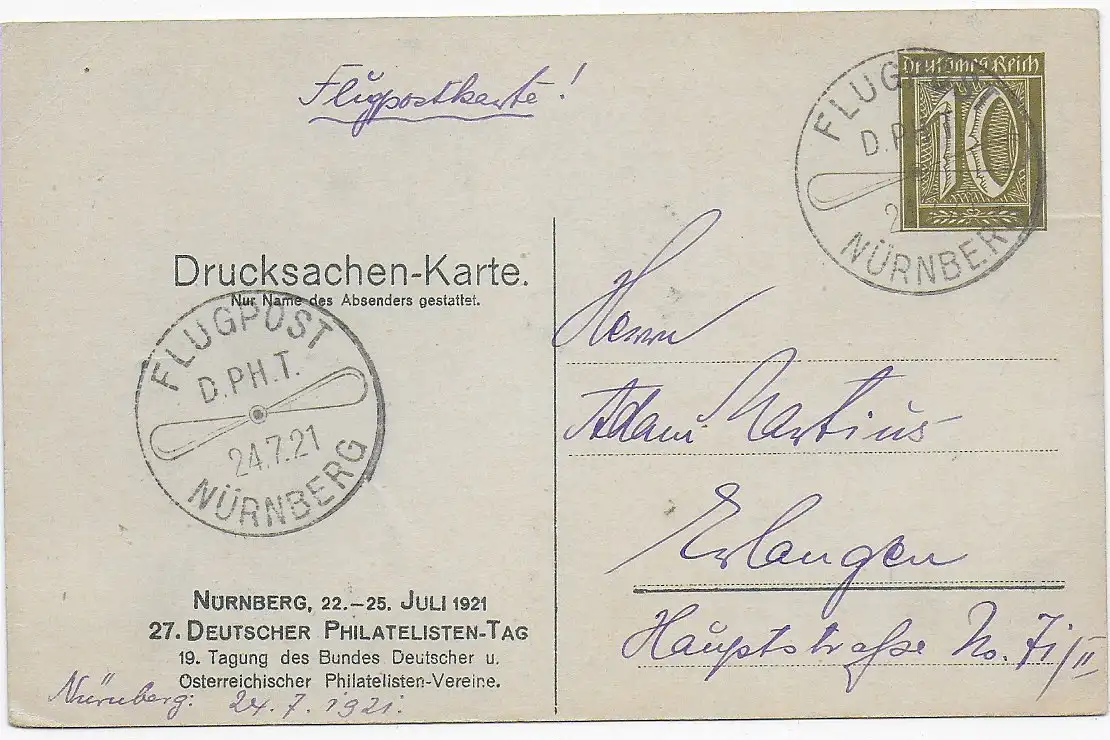 Flugpostkarte!
Deutsches Reich
10
FLUGPOST
D.PH.T.
NÜRNBERG
Drucksachen-Karte.
Nur Name des Absenders gestattet.
FLUGPOST
D.PH.T.
24.7.21
NÜRNBERG
NÜRNBERG, 22.–25. JULI 1921
27. DEUTSCHER PHILATELISTEN-TAG
19. Tagung des Bundes Deutscher u.
Österreichischer Philatelisten-Vereine.
Nürnberg: 24.7.1921.
Herrn
Adam Martius
Erlangen
Hauptstraße No. 71/II